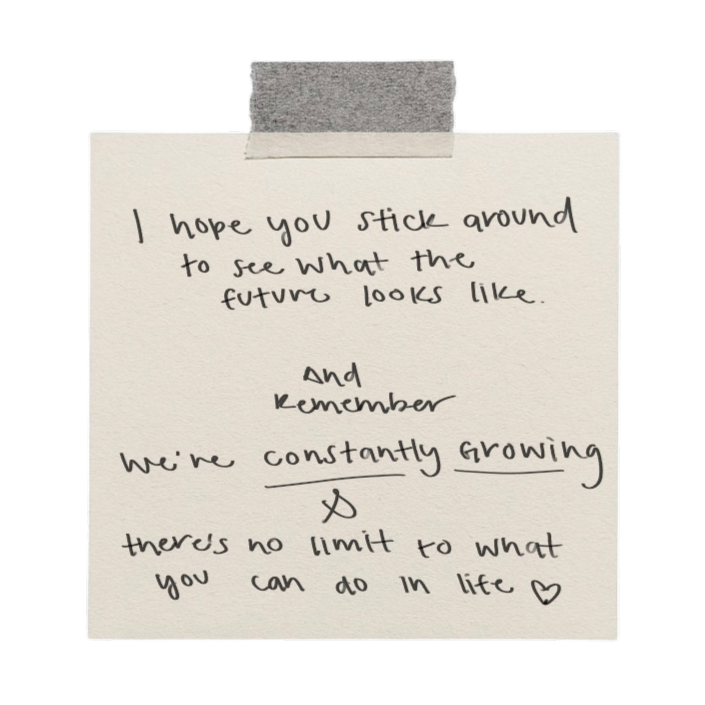 I hope you stick around
to see what the
future looks like.
And
Remember
we're constantly Growing
&
there's no limit to what
you can do in life ♡